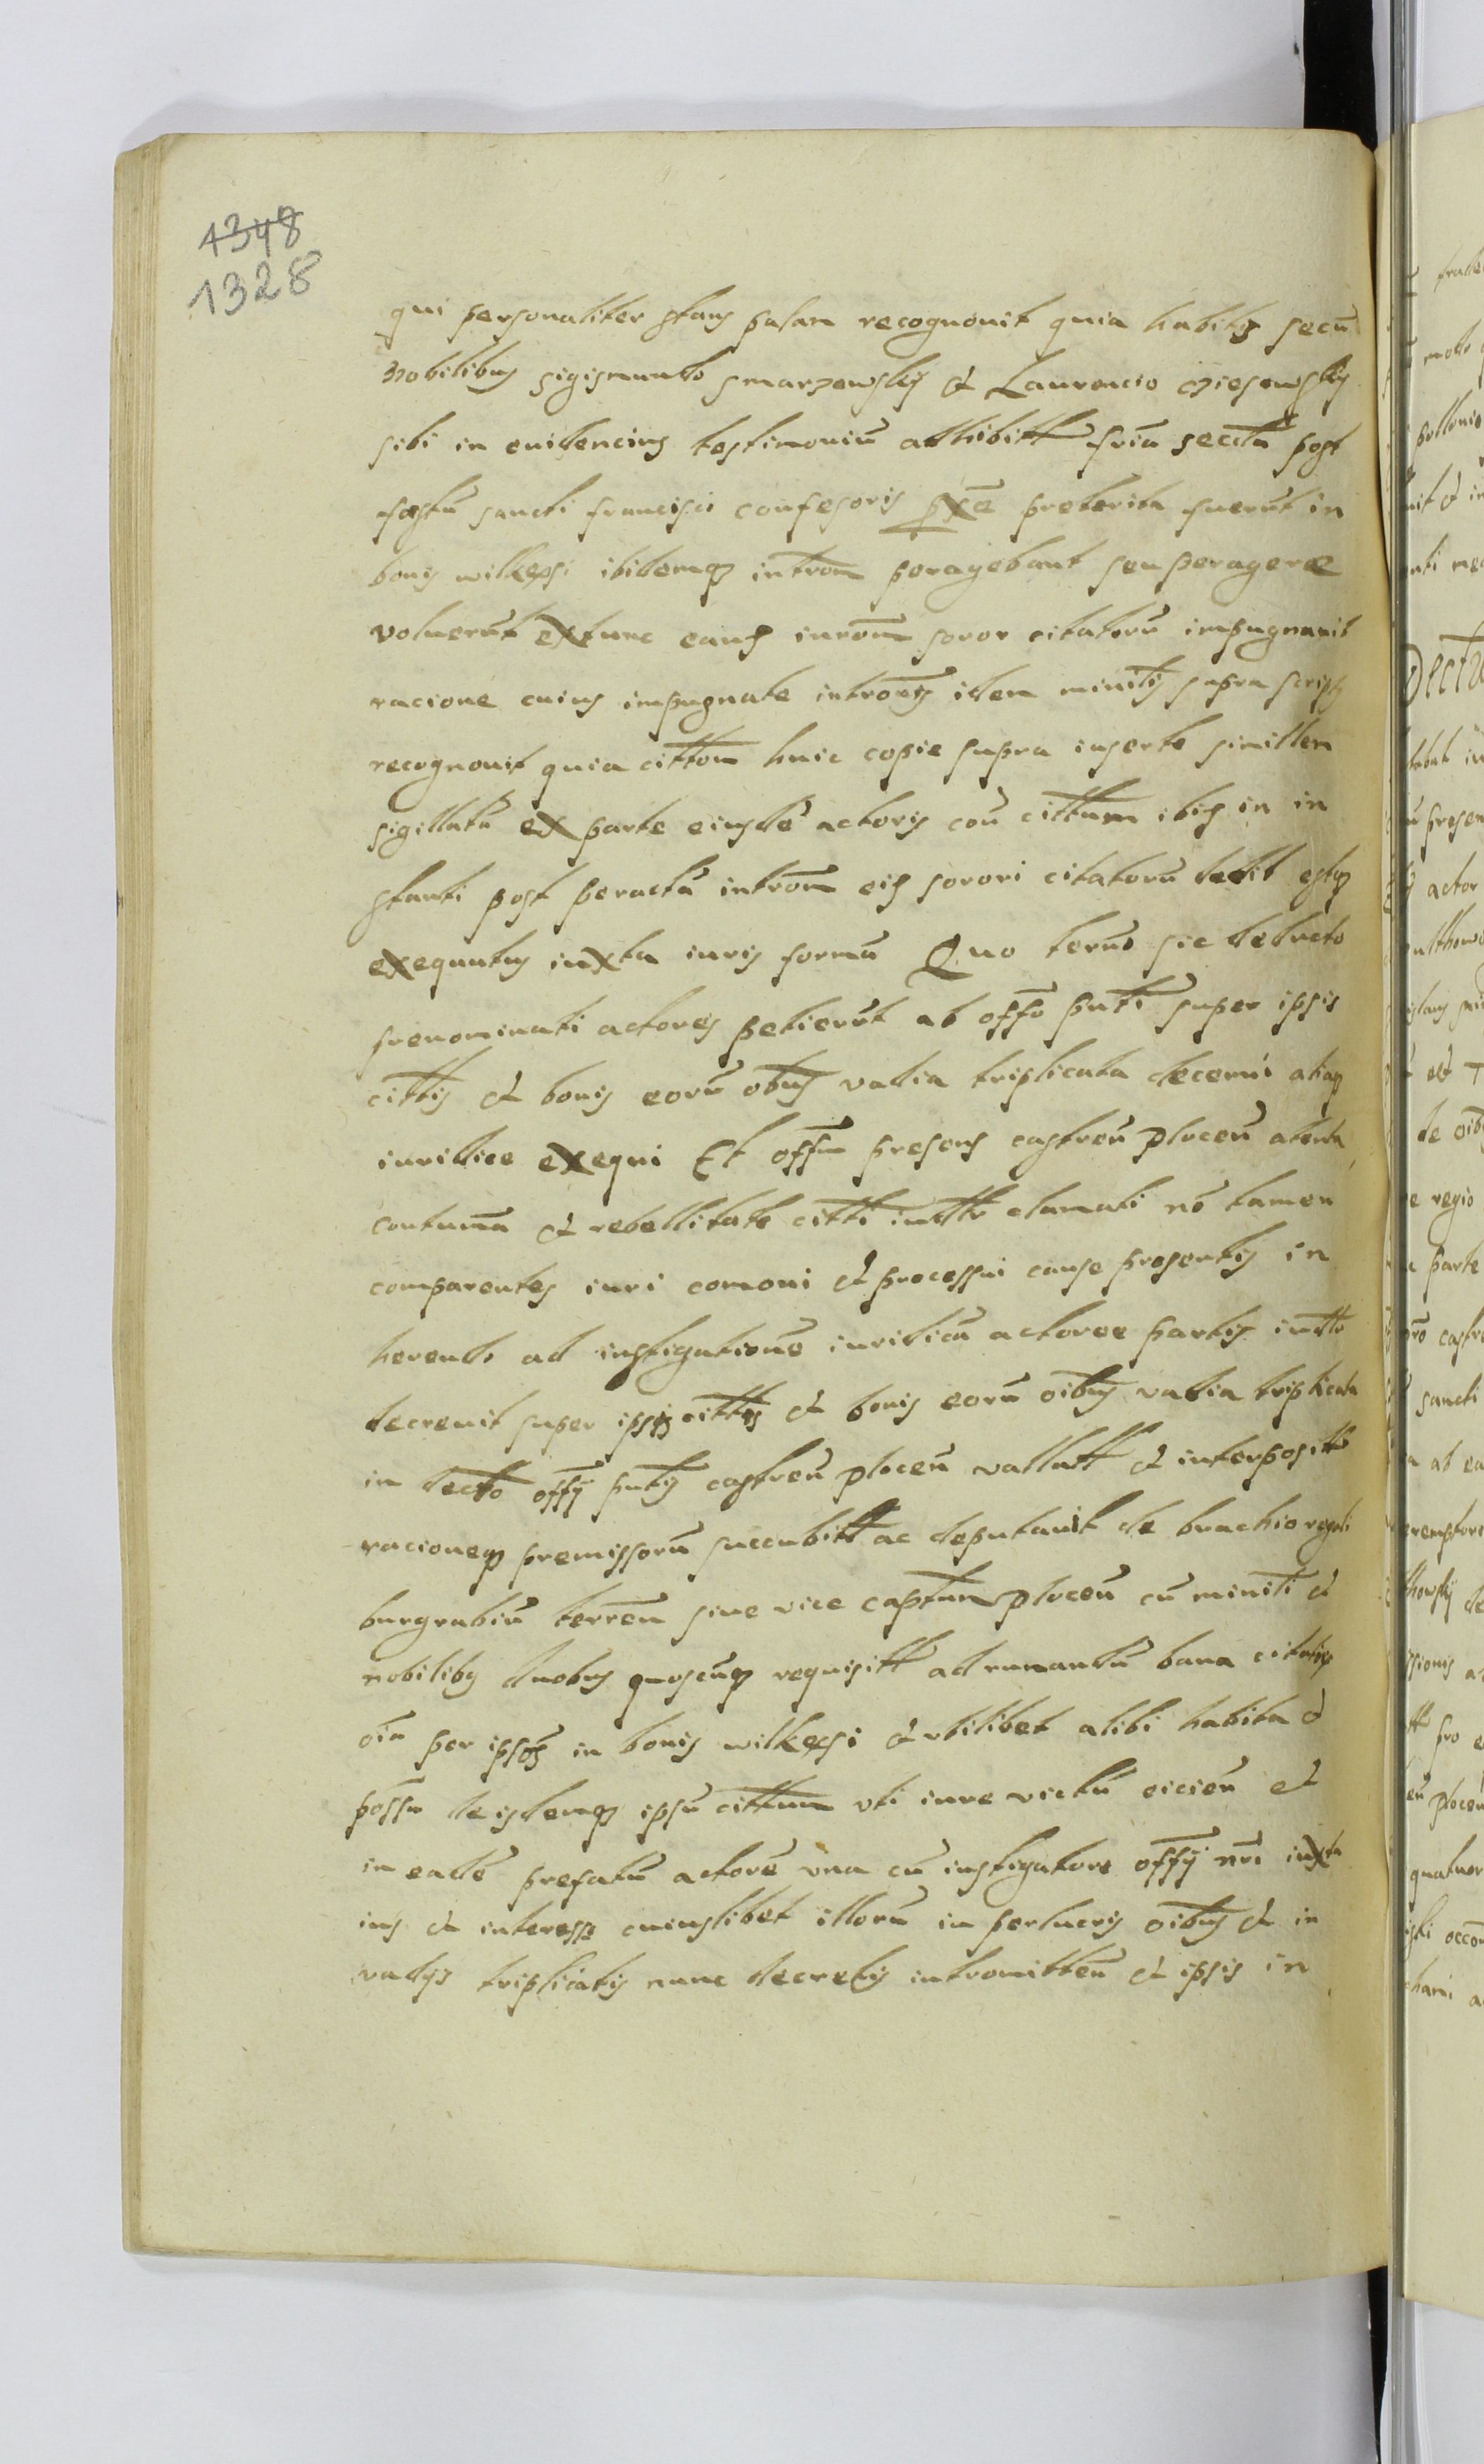 1348
1328
qui personaliter stans palam recognouit quia habitis secū
Nobilibus sigismundo smarzewskÿ et Laurencio
sibi in euidencius testimoniū adhibitt fria secūda post
festū sancti francisci confesoris pxe preterita fuerūt in
bonis wilkexsi ibidemq introm peragebant seu peragere
voluerūt extunc eand introm soror citatorū impugnauit
racione cuius impugnate intronis idem minitis supra scripts
recognouit quia cittom huic copie supra inserte similem
sigillatū ex parte eiusdē actoris coū cittum ibid in in
stanti post peractū introm eid sorori citatorū dedit estq
exequutus iuxta iuris formā Quo termō sic deducto
prenominati actores petierūt ab offo pnti super ipsis
cittis et bonis eorū oibus vadia triplicata decerni aliaq
iuridice exequi Et offm presens castren plocen atenta
contuma et rebellitate citti inctto clamati nō tamen
comparentes iuri comoni et processui cause presentis in
herendo ad instigationē iuridicā actoree partis inctto
decreuit super ipsis cittis et bonis eorū oibus vadia triplicata
in decto offÿ pntis castren plocen vallatt et interpositt
racioneq premissorū succubitt ac deputauit de brachio regali
burgrabiū terren siue vice captum plocen cū miniti et
nobilibus duobus quoscūq requisitt ad bana citatisq
oīa per ipsos in bonis wilkexsi et vbilibet alibi habita et
possa deisdemq ipsū cittum vti iure victū eicien et
in eadē prefatū actorē vna cū instigatore offÿ nri iuxta
ius et interesse cuiuslibet illorū in perlucris oibus et in
vadÿs triplicatis nunc decretis intromitten et ipsis in